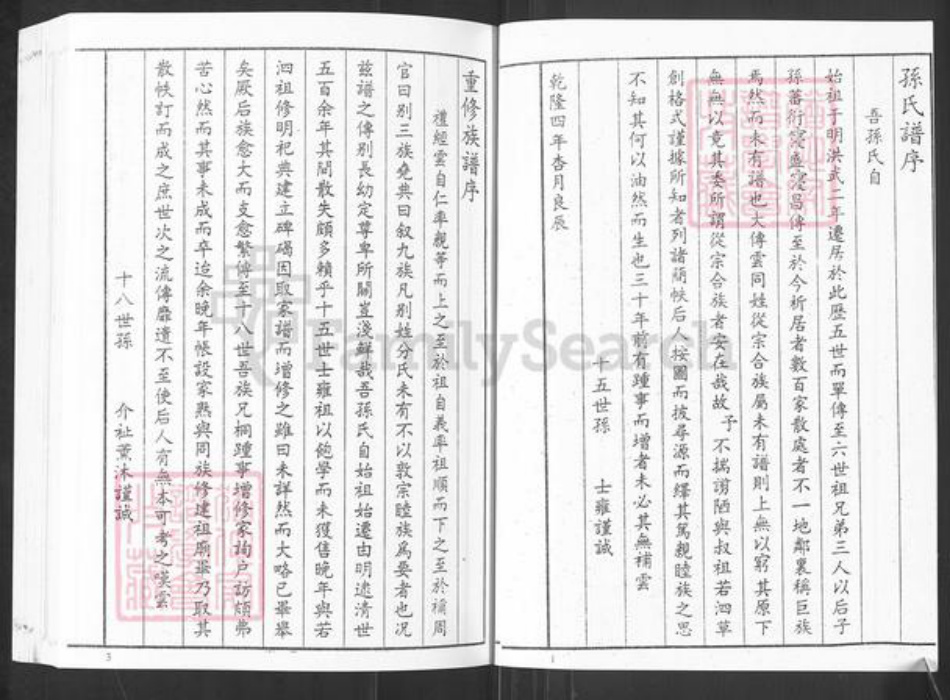 孫氏譜序
吾孫氏自
始祖于明洪武二年遷居於此歷五世而單傳至六世祖兄弟三人以后子
孫蕃衍寖盛寖昌傳至於今析居者數百家散處者不一地鄰裏稱巨族
焉然而未有譜也大傳雲同姓從宗合族屬未有譜則上無以窮其原下
無以竟其委所謂從宗合族者安在哉故予不揣謭陋與叔祖若泗草
創格式謹據所知者列諸簡帙后人按圖而披尋源而繹其篤親睦族之思
不知其何以油然而生也三十年前有踵事而增者未必其無補雲
十五世孫 士雍謹誠
乾隆四年杏月良辰
1
重修族譜序
禮經雲自仁率親等而上之至於祖自義率祖順而下之至於禰周
官曰別三族堯典曰叙九族凡別姓分氏未有不以敦宗睦族爲要者也况
玆譜之傳別長幼定尊卑所關豈淺鮮哉吾孫氏自始祖始遷由明逮清世
五百余年其間散失頗多賴乎十五世士雍祖以飽學而未獲售晚年與若
泗祖修明祀典建立碑碣因取家譜而增修之雖曰未詳然而大略已畢舉
矣厥后族愈大而支愈繁傳至十八世吾族兄桐踵事增修家詢户訪頗弗
苦心然而其事未成而卒迨余晚年帳設家熟與同族修建祖廟畢乃取其
散帙訂而成之庶世次之流傳靡遺不至使后人有無本可考之嘆雲
十八世孫 介祉薰沐謹誠
3
FamilySearch